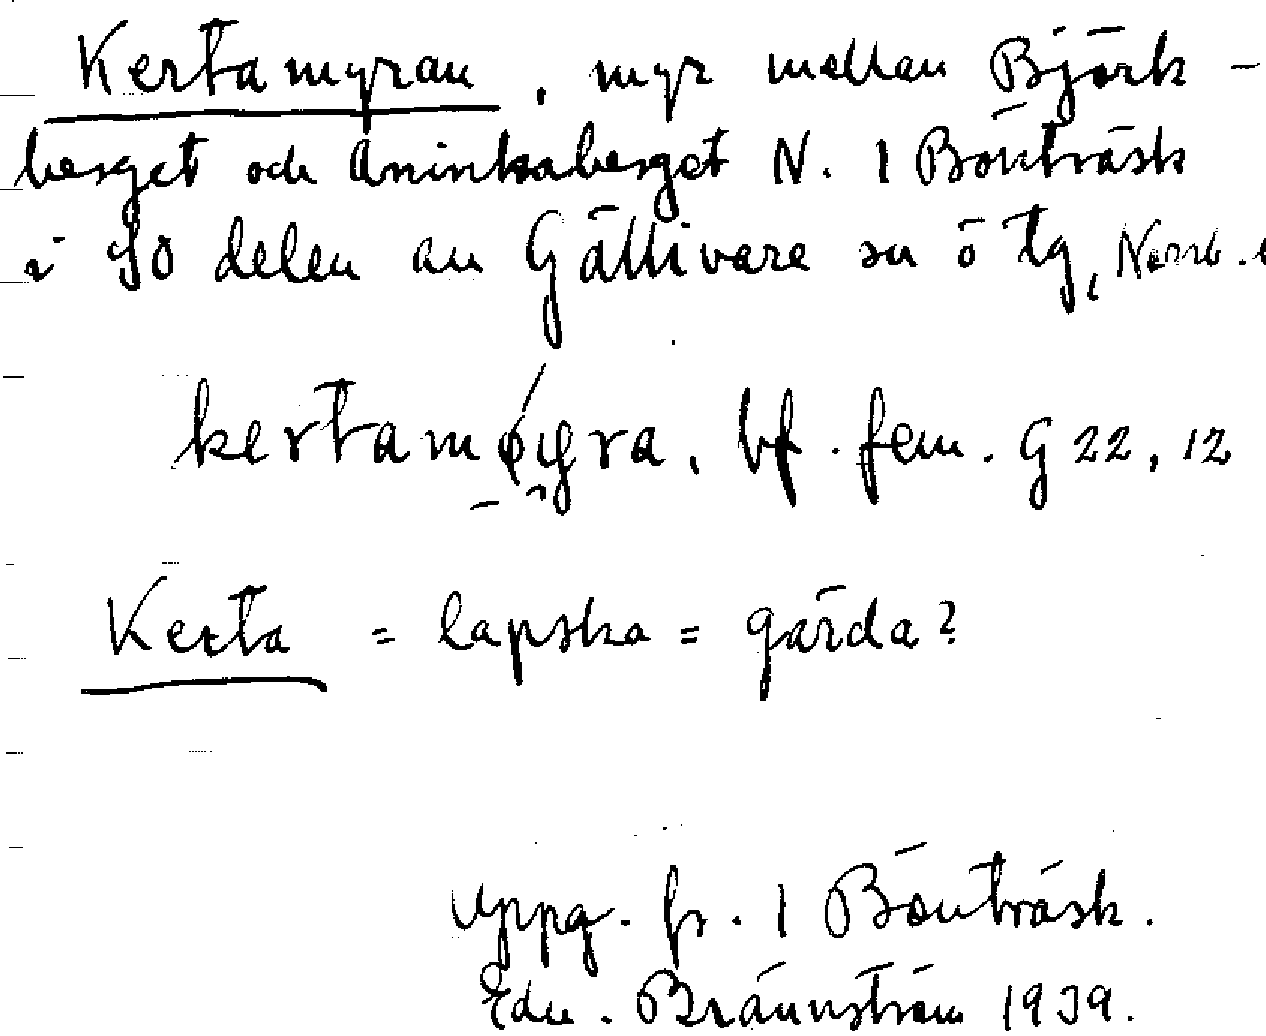 Kertamyran, myr mellan Björk-
berget och Aninkaberget N. 1 Bönträsk
i SO delen av Gällivare sn ö tg, Norrb. l
kertamøyra, bf. fem. G 22, 12
Kerta = lapska = gärda?
Uppg. fr. 1 Bönträsk.
Edv. Brännström 1939.